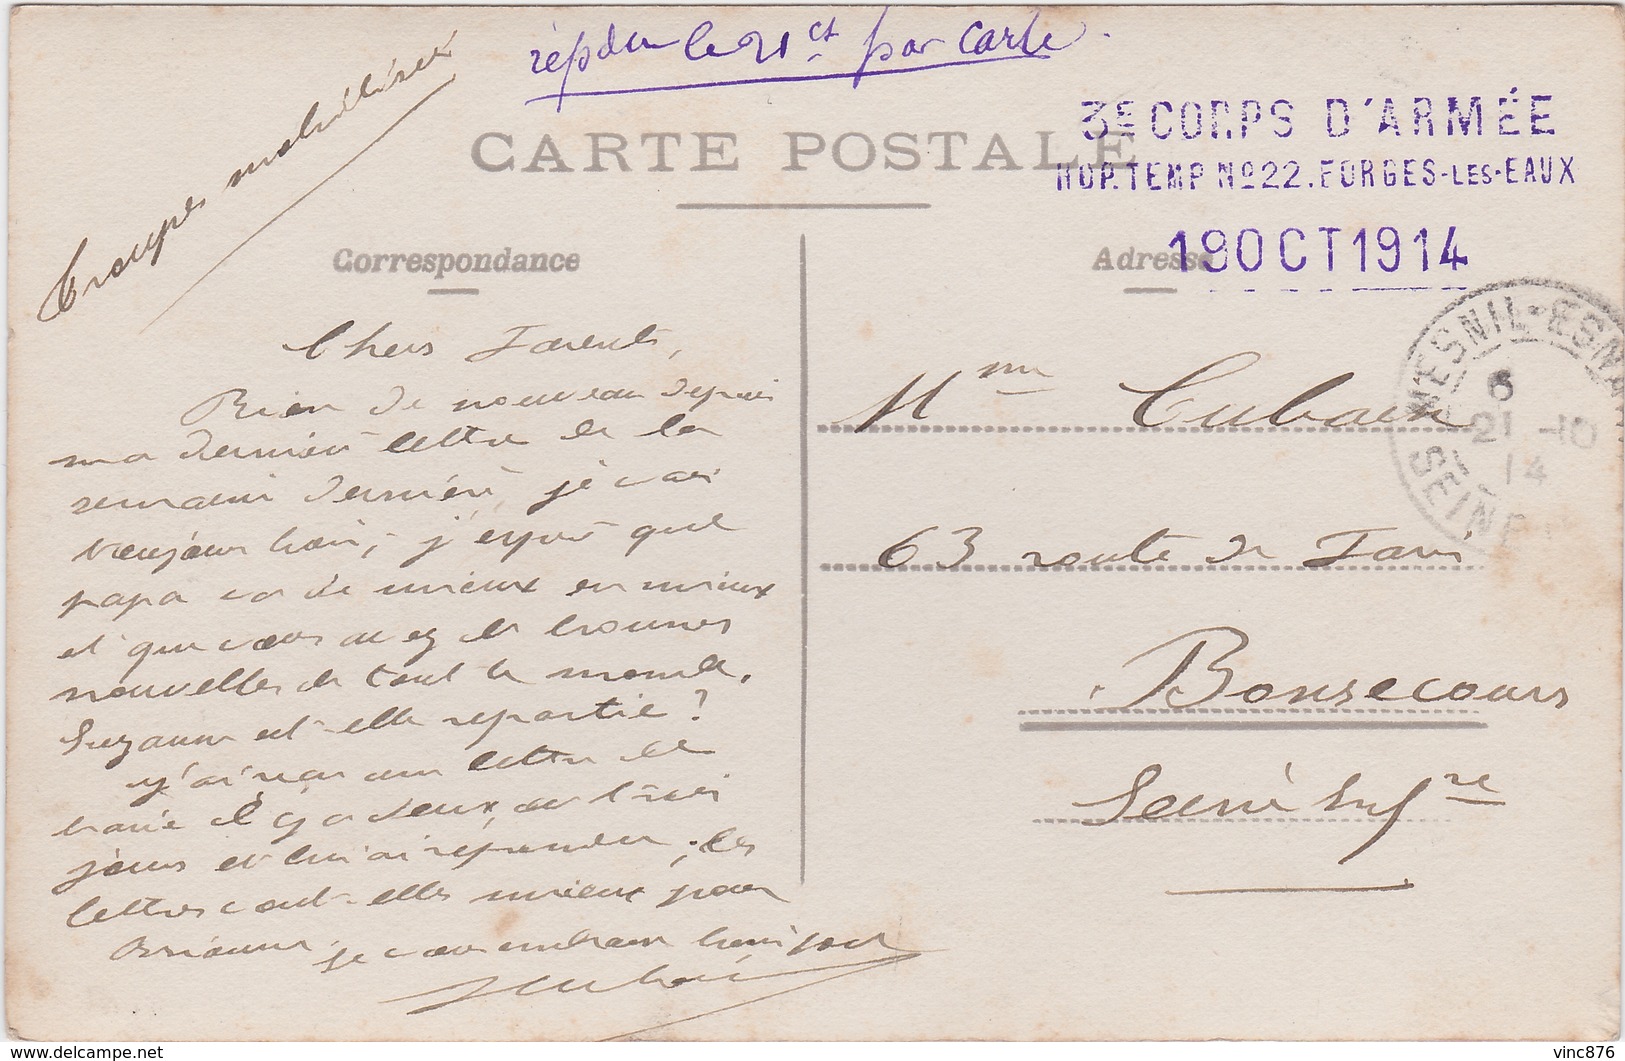 répondu le 21 ct par carte.
Troupes mobilisées
CARTE POSTALE
3E CORPS D'ARMÉE
HOP. TEMP No 22. FORGES-LES-EAUX
19 OCT 1914
Correspondance
Adresse
MESNIL-ESNA
6
21 -10
14
SEINE
Chers Parents,
Rien de nouveau depuis
ma dernière lettre de la
semaine dernière, je vais
toujours bien, j'espère que
papa va de mieux en mieux
et que vous avez de bonnes
nouvelles de tout le monde.
Suzanne est-elle repartie?
J'ai reçu une lettre de
il y a deux ou trois
jours et lui ai répondu; les
lettres vont-elles mieux pour
je vous embrasse bien fort
Mme
63 route de Paris
Bonsecours
Seine Infre
www.delcampe.net
vinc876